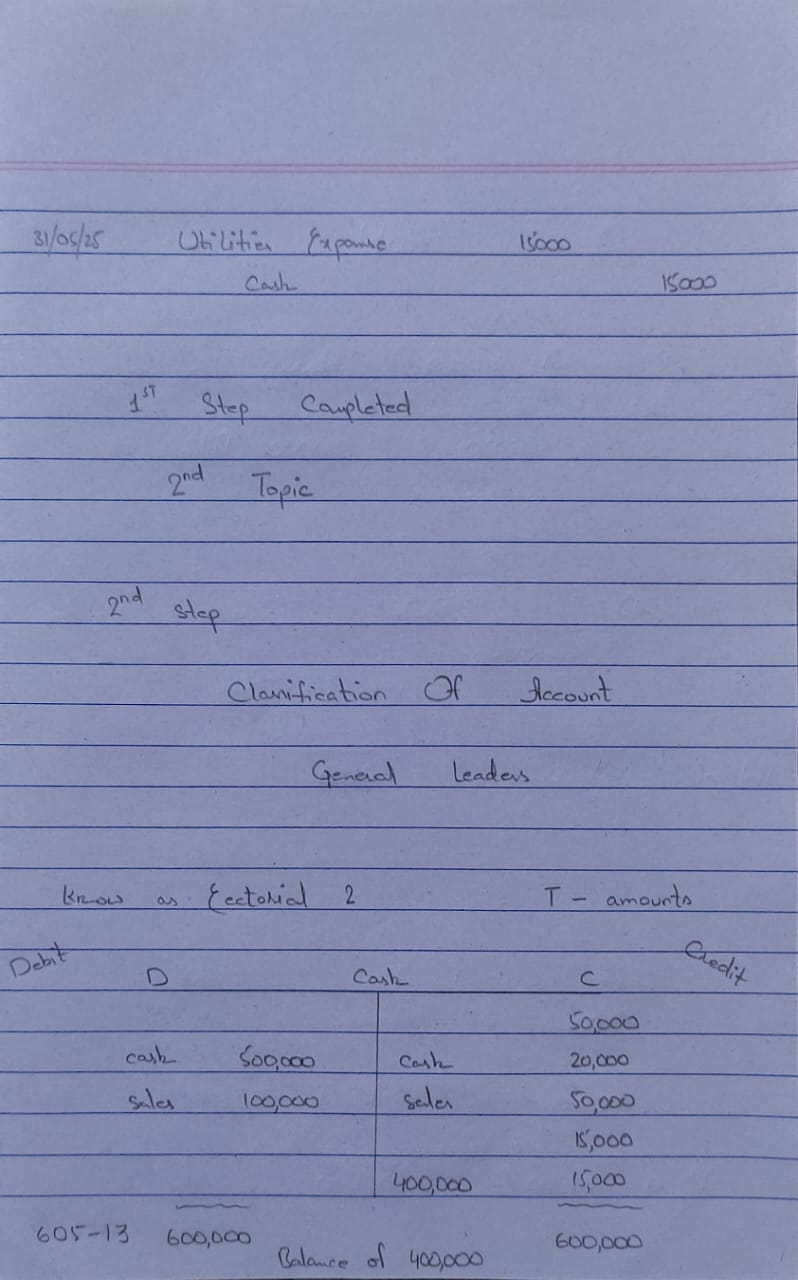 31/05/25 Utilities Expanse 15000
Cash 15000
1ST Step Completed
2nd Topic
2nd step
Classification Of Account
General Leaders
Know as 2 T - amounts
Debit D Cash C Credit
50,000
cash 500,000 Cash 20,000
sales 100,000 Sales 50,000
15,000
400,000 15,000
605-13 600,000 600,000
Balance of 400,000